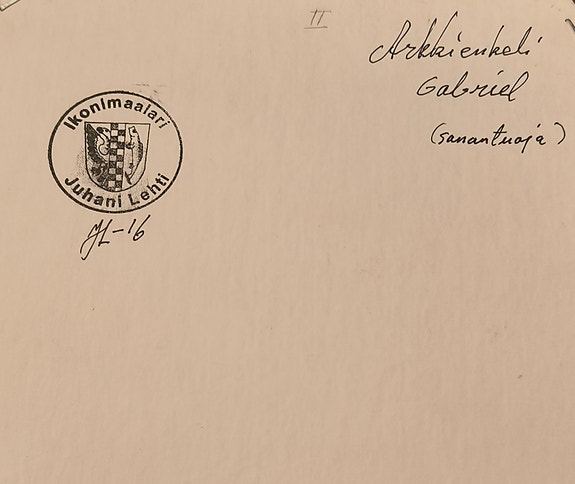 II
Arkkienkeli
Gabriel
(sanantuoja)
Ikonimaalari
Juhani Lehti
JL-16